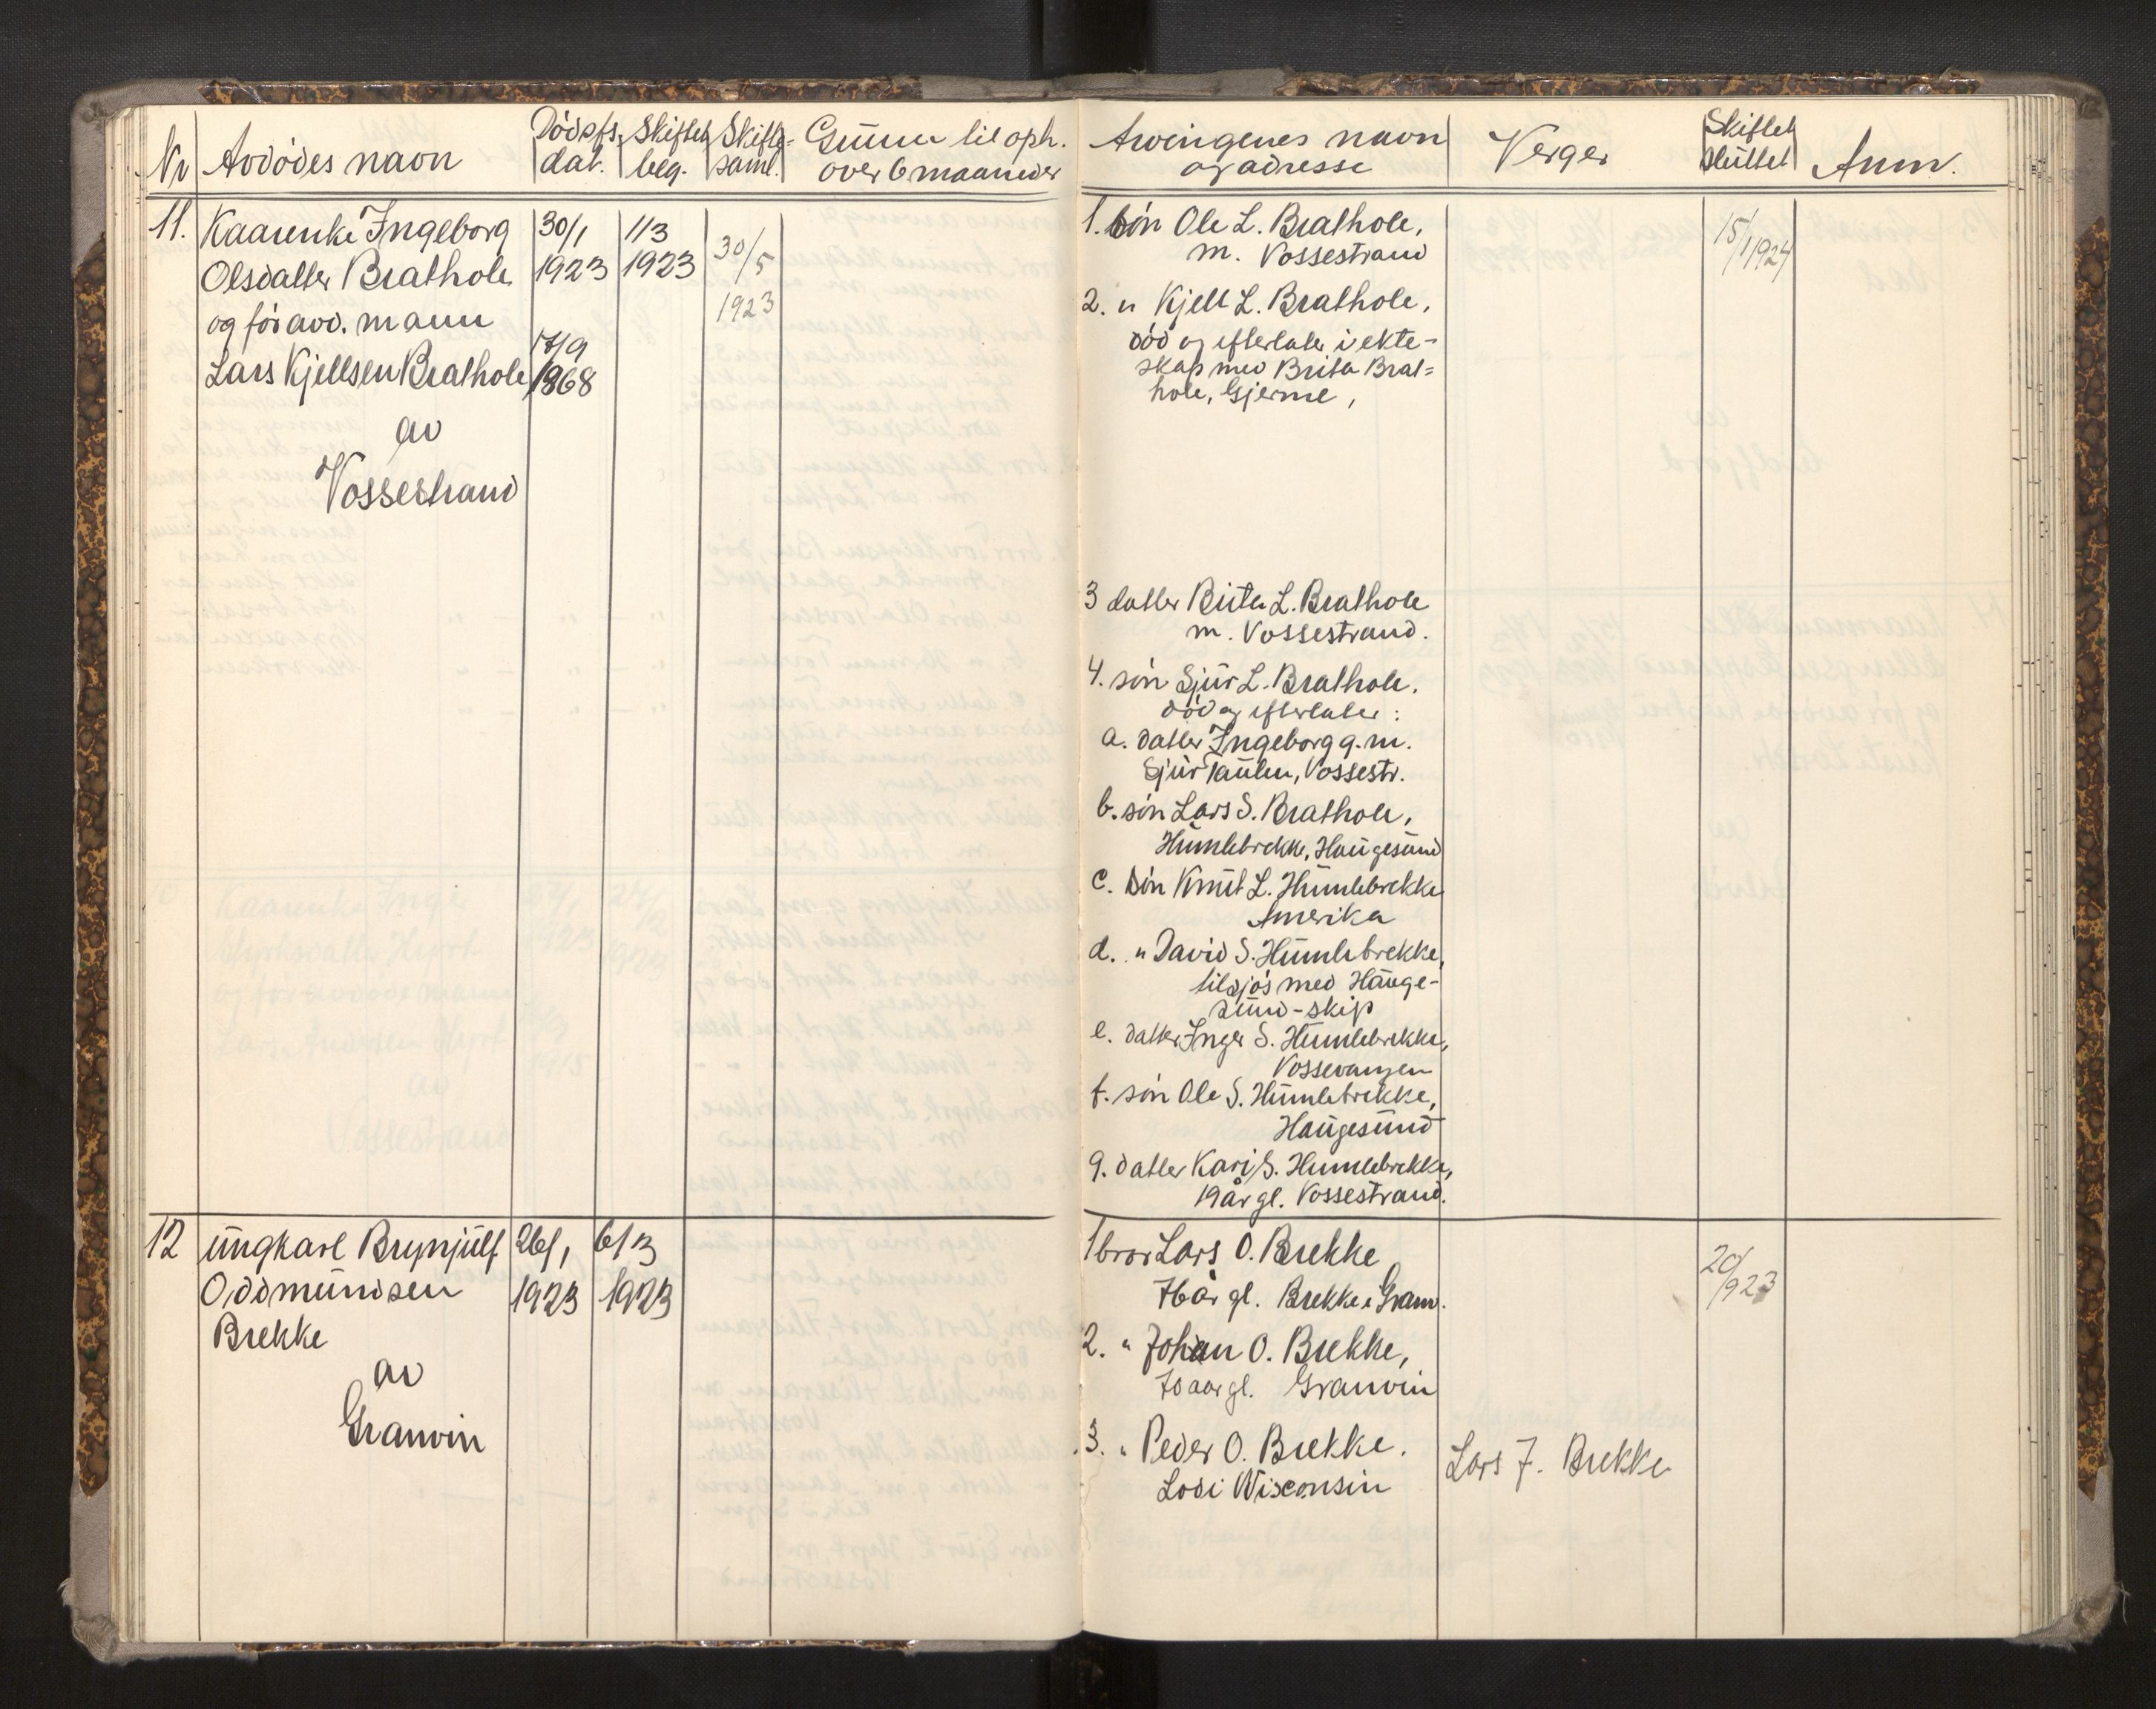 Nr
Avdödes navn
Dödsfs. dat.
Skiftet beg.
Skifte- saml.
Grunn til oph. over 6 maaneder
Arvingenes navn og adresse
Verger
Skiftet sluttet
Anm.
11.
Kaarenke Ingeborg
Olsdatter Brathole
og för avd. mann
Lars Kjellsen Brathole
av
Vossestrand
30/1
1923
17/9
1868
1/3
1923
30/5
1923
1. sön Ole L. Brathole,
m. Vossestrand
2. " Kjell L. Brathole,
död og efterlater i ekte-
skap med Brita Brat=
hole, Gjerme,
3 datter Brita L. Brathole
m. Vossestrand.
4. sön Sjur L. Brathole.
död og efterlater:
a. datter Ingeborg g. m.
Sjur Taulen, Vossestr.
b. sön Lars S. Brathole,
Humlebrekke, Haugesund
c. sön Knut L. Humlebrekke
Amerika
d. " David S. Humlebrekke,
tilsjös med Hauge-
sund-skip
e. datter Inger S. Humlebrekke,
Vossevangen
f. sön Ole S. Humlebrekke,
Haugesund
g. datter Kari S. Humlebrekke,
19 år gl. Vossestrand.
15/1 1924
12
ungkarl Brynjulf
Oddmundsen
Brekke
av
Granvin
26/1
1923
6/3
1923
1 bror Lars O. Brekke
76 år gl. Brekke i Granv.
2. " Johan O. Brekke,
70 aar gl. Granvin
3. " Peder O. Brekke.
Lodi Wisconsin
Lars J. Brekke